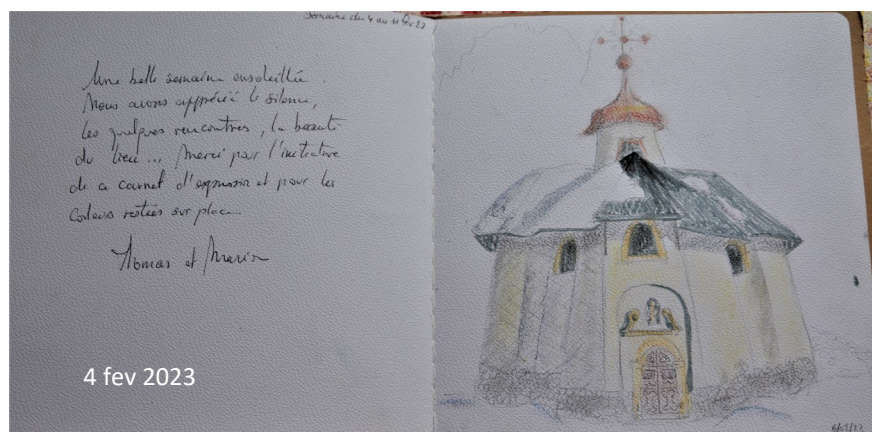 Semaine du 4 au 11 fev 23
Une belle semaine ensoleillée.
Nous avons apprécié le silence,
les quelques rencontres, la beauté
du lieu ... Merci pour l'initiative
de ce carnet d'expression et pour les
couleurs restées sur place.
Thomas et Marion
4 fev 2023
6/02/23